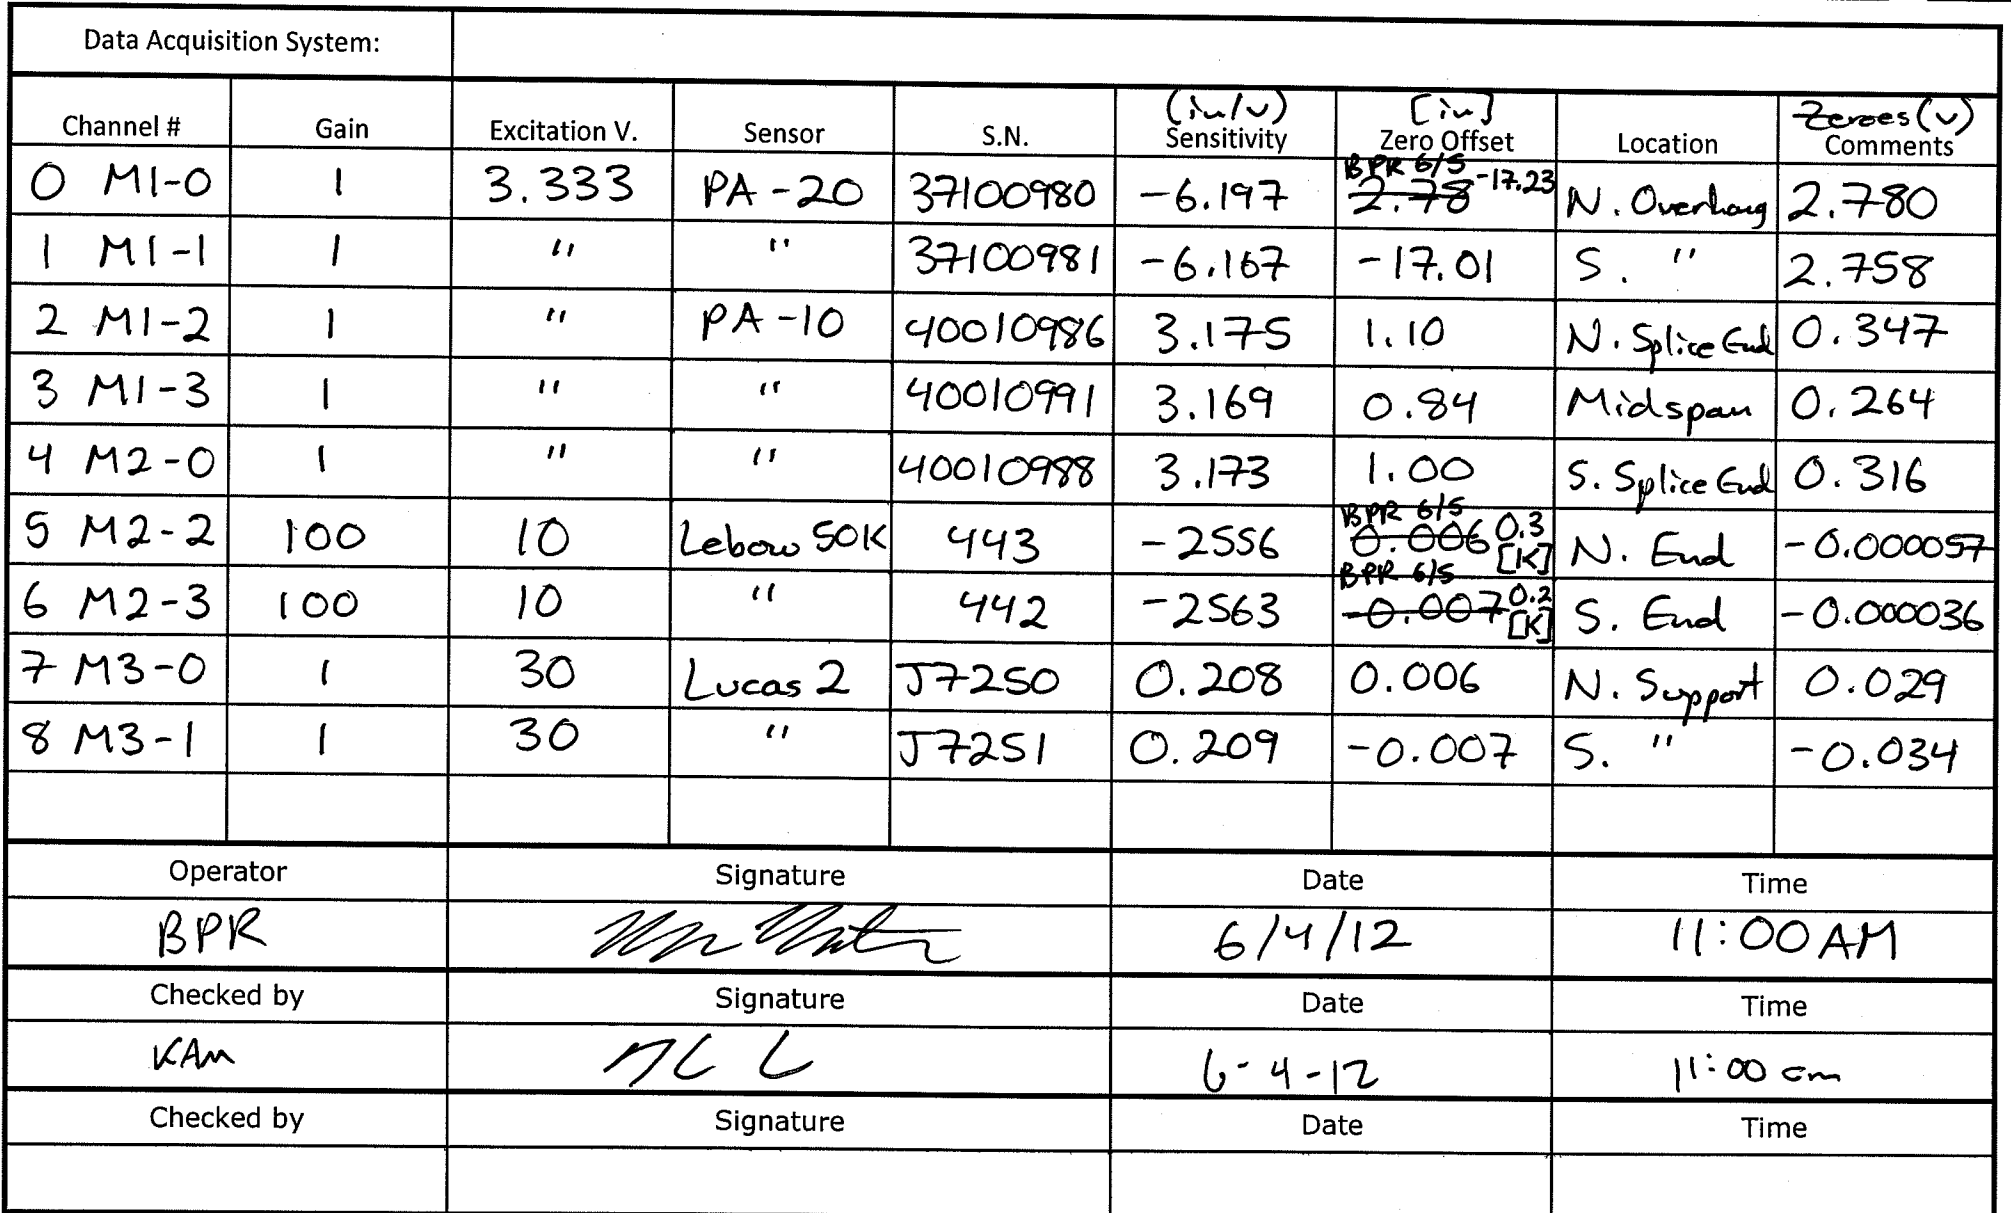 Data Acquisition System:
Channel # Gain Excitation V. Sensor S.N. (in/v) Sensitivity [in] Zero Offset Location Zeroes (v) Comments
0 M1-0 1 3.333 PA-20 37100980 -6.197 BPR 6/5 2.78 -17.23 N. Overhang 2.780
1 M1-1 1 " " 37100981 -6.167 -17.01 S. " 2.758
2 M1-2 1 " PA-10 40010986 3.175 1.10 N. Splice End 0.347
3 M1-3 1 " " 40010991 3.169 0.84 Midspan 0.264
4 M2-0 1 " " 40010988 3.173 1.00 S. Splice End 0.316
5 M2-2 100 10 Lebow 50K 443 -2556 BPR 6/5 0.006 0.3 [K] N. End -0.000057
6 M2-3 100 10 " 442 -2563 BPR 6/5 -0.007 0.2 [K] S. End -0.000036
7 M3-0 1 30 Lucas 2 J7250 0.208 0.006 N. Support 0.029
8 M3-1 1 30 " J7251 0.209 -0.007 S. " -0.034
Operator Signature Date Time
BPR 6/4/12 11:00 AM
Checked by Signature Date Time
KAM 6-4-12 11:00 am
Checked by Signature Date Time